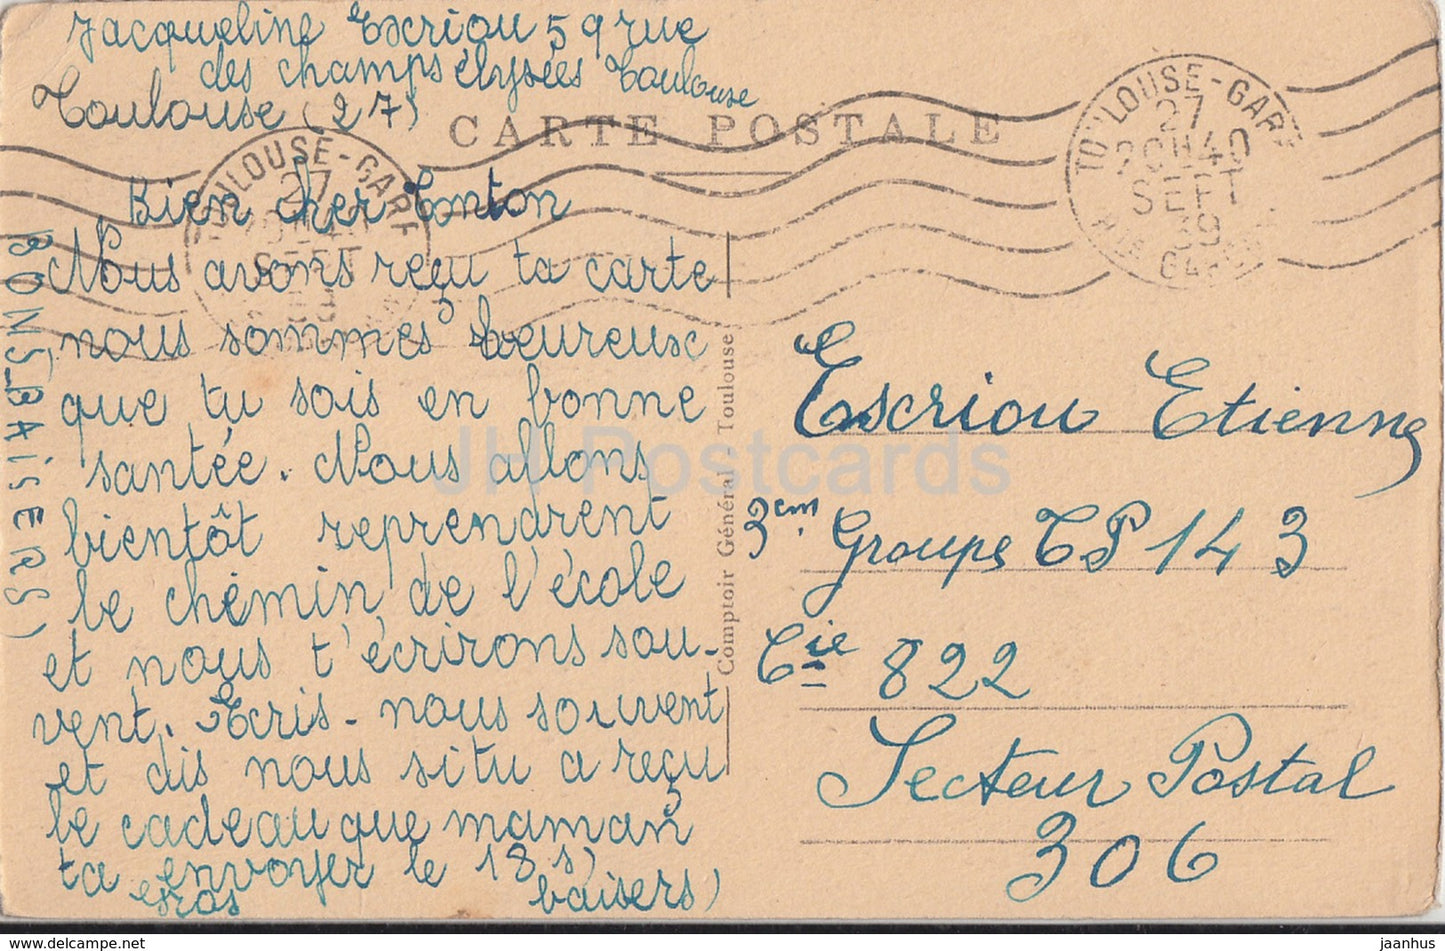 Jacqueline Escriou 59 rue
des champs élysées Toulouse
Toulouse (27)
CARTE POSTALE
TOULOUSE-GARE
27
20H40
SEPT
39
TOULOUSE-GARE
27
20H40
SEPT
39
Bien cher Tonton
Nous avons reçu ta carte
nous sommes heureuse
que tu sois en bonne
santée. Nous allons
bientôt reprendrent
le chémin de l'école
et nous t'écrirons sou-
vent. Ecris-nous souvent
et dis nous si tu a reçu
le cadeau que maman
ta envoyer le 18 s)
gros baisers)
BONS BAISERS)
Comptoir Général Toulouse
Escriou Etienne
3em Groupe TP 143
Cie 822
Secteur Postal
306
JH Postcards
jaanhus - www.delcampe.net